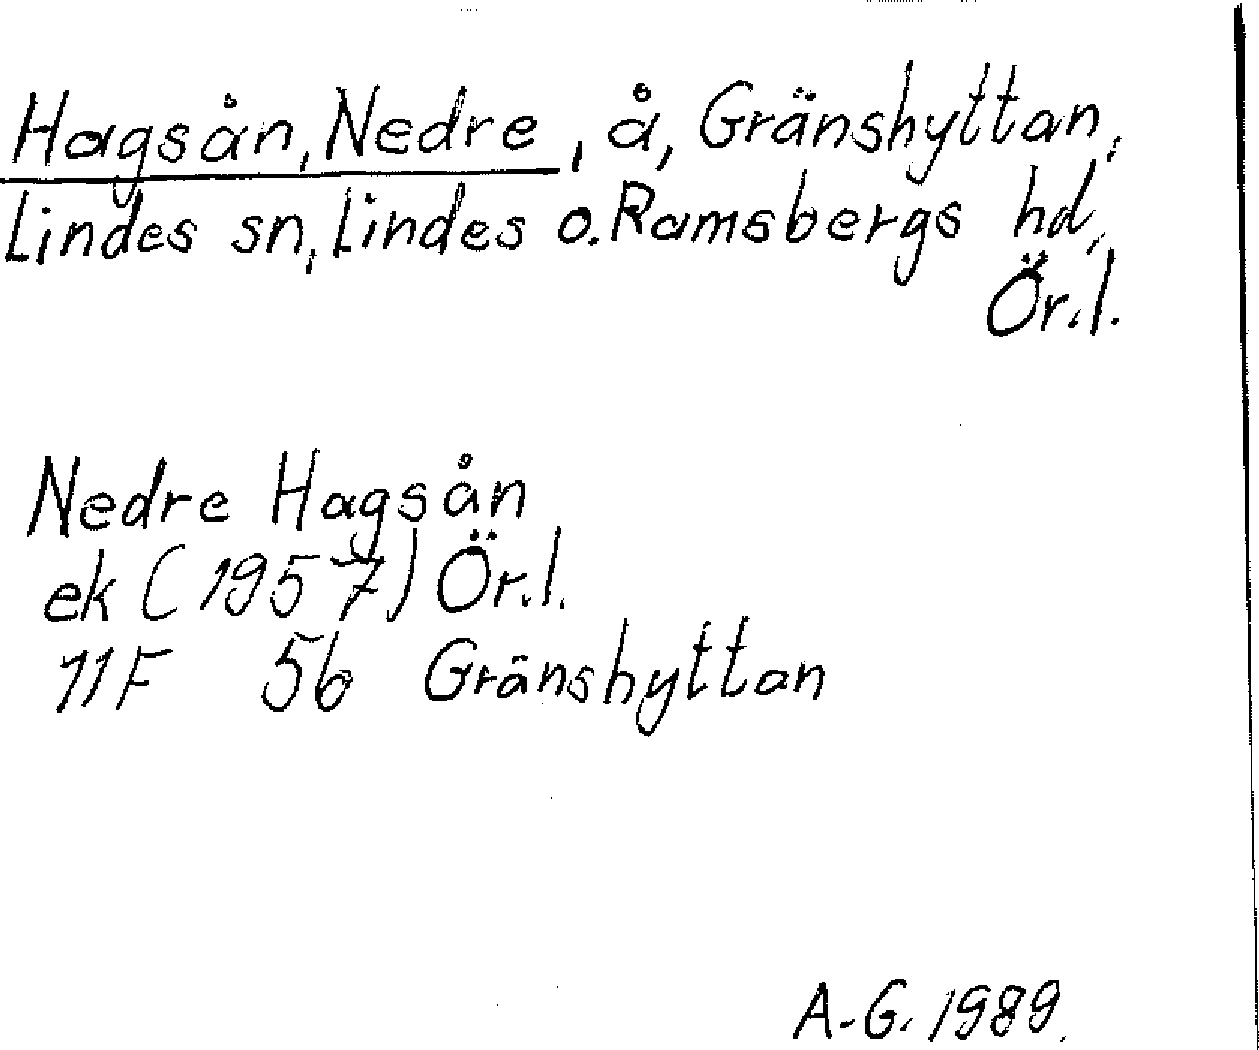 Hagsån, Nedre, å, Gränshyttan,
Lindes sn, Lindes o. Ramsbergs hd,
Ör.l.
Nedre Hagsån
ek (1957) Ör.l.
11F 5b Gränshyttan
A-G. 1989.